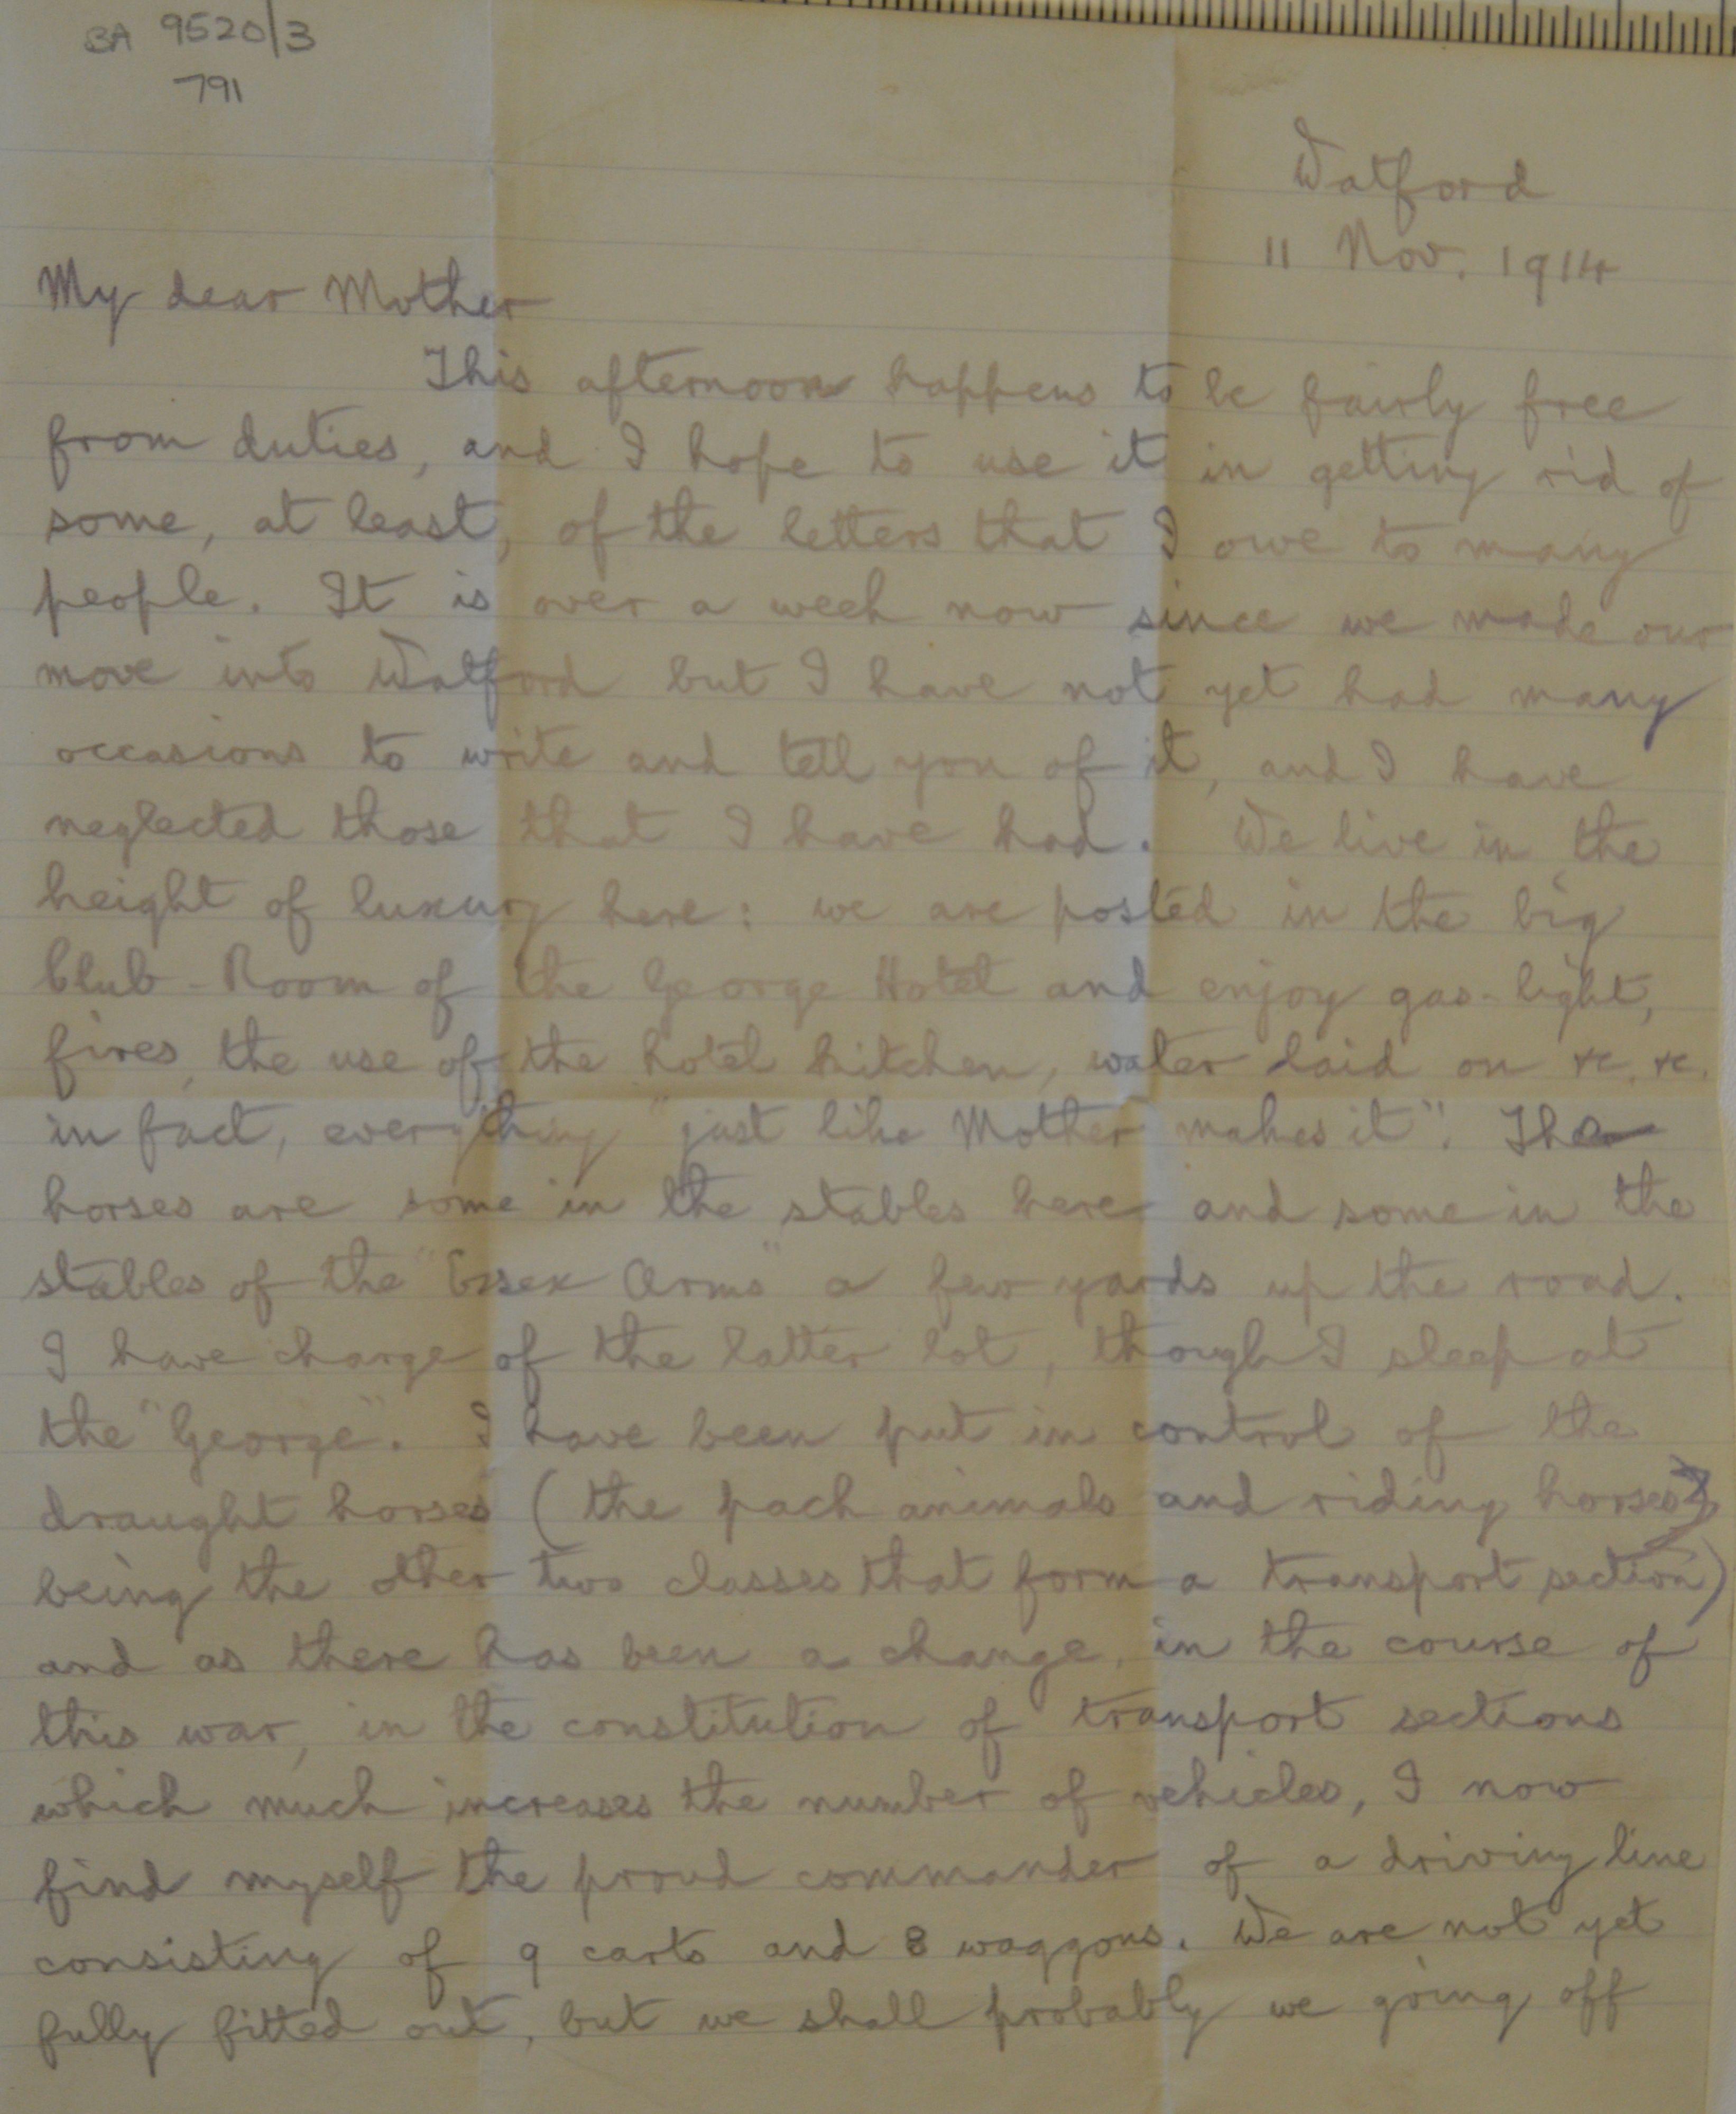 BA 9520/3
791
Watford
11 Nov. 1914
My dear Mother
This afternoon happens to be fairly free
from duties, and I hope to use it in getting rid of
some, at least, of the letters that I owe to many
people. It is over a week now since we made our
move into Watford but I have not yet had many
occasions to write and tell you of it, and I have
neglected those that I have had. We live in the
height of luxury here: we are posted in the big
Club-Room of the George Hotel and enjoy gas-light,
fires, the use of the hotel kitchen, water laid on &c. &c.
in fact, everything "just like Mother makes it". The
horses are some in the stables here and some in the
stables of the "Essex Arms" a few yards up the road.
I have charge of the latter lot, though I sleep at
the "George". I have been put in control of the
draught horses (the pack animals and riding horses
being the other two classes that form a transport section)
and as there has been a change, in the course of
this war, in the constitution of transport sections
which much increases the number of vehicles, I now
find myself the proud commander of a driving line
consisting of 9 carts and 8 waggons. We are not yet
fully fitted out, but we shall probably we going off